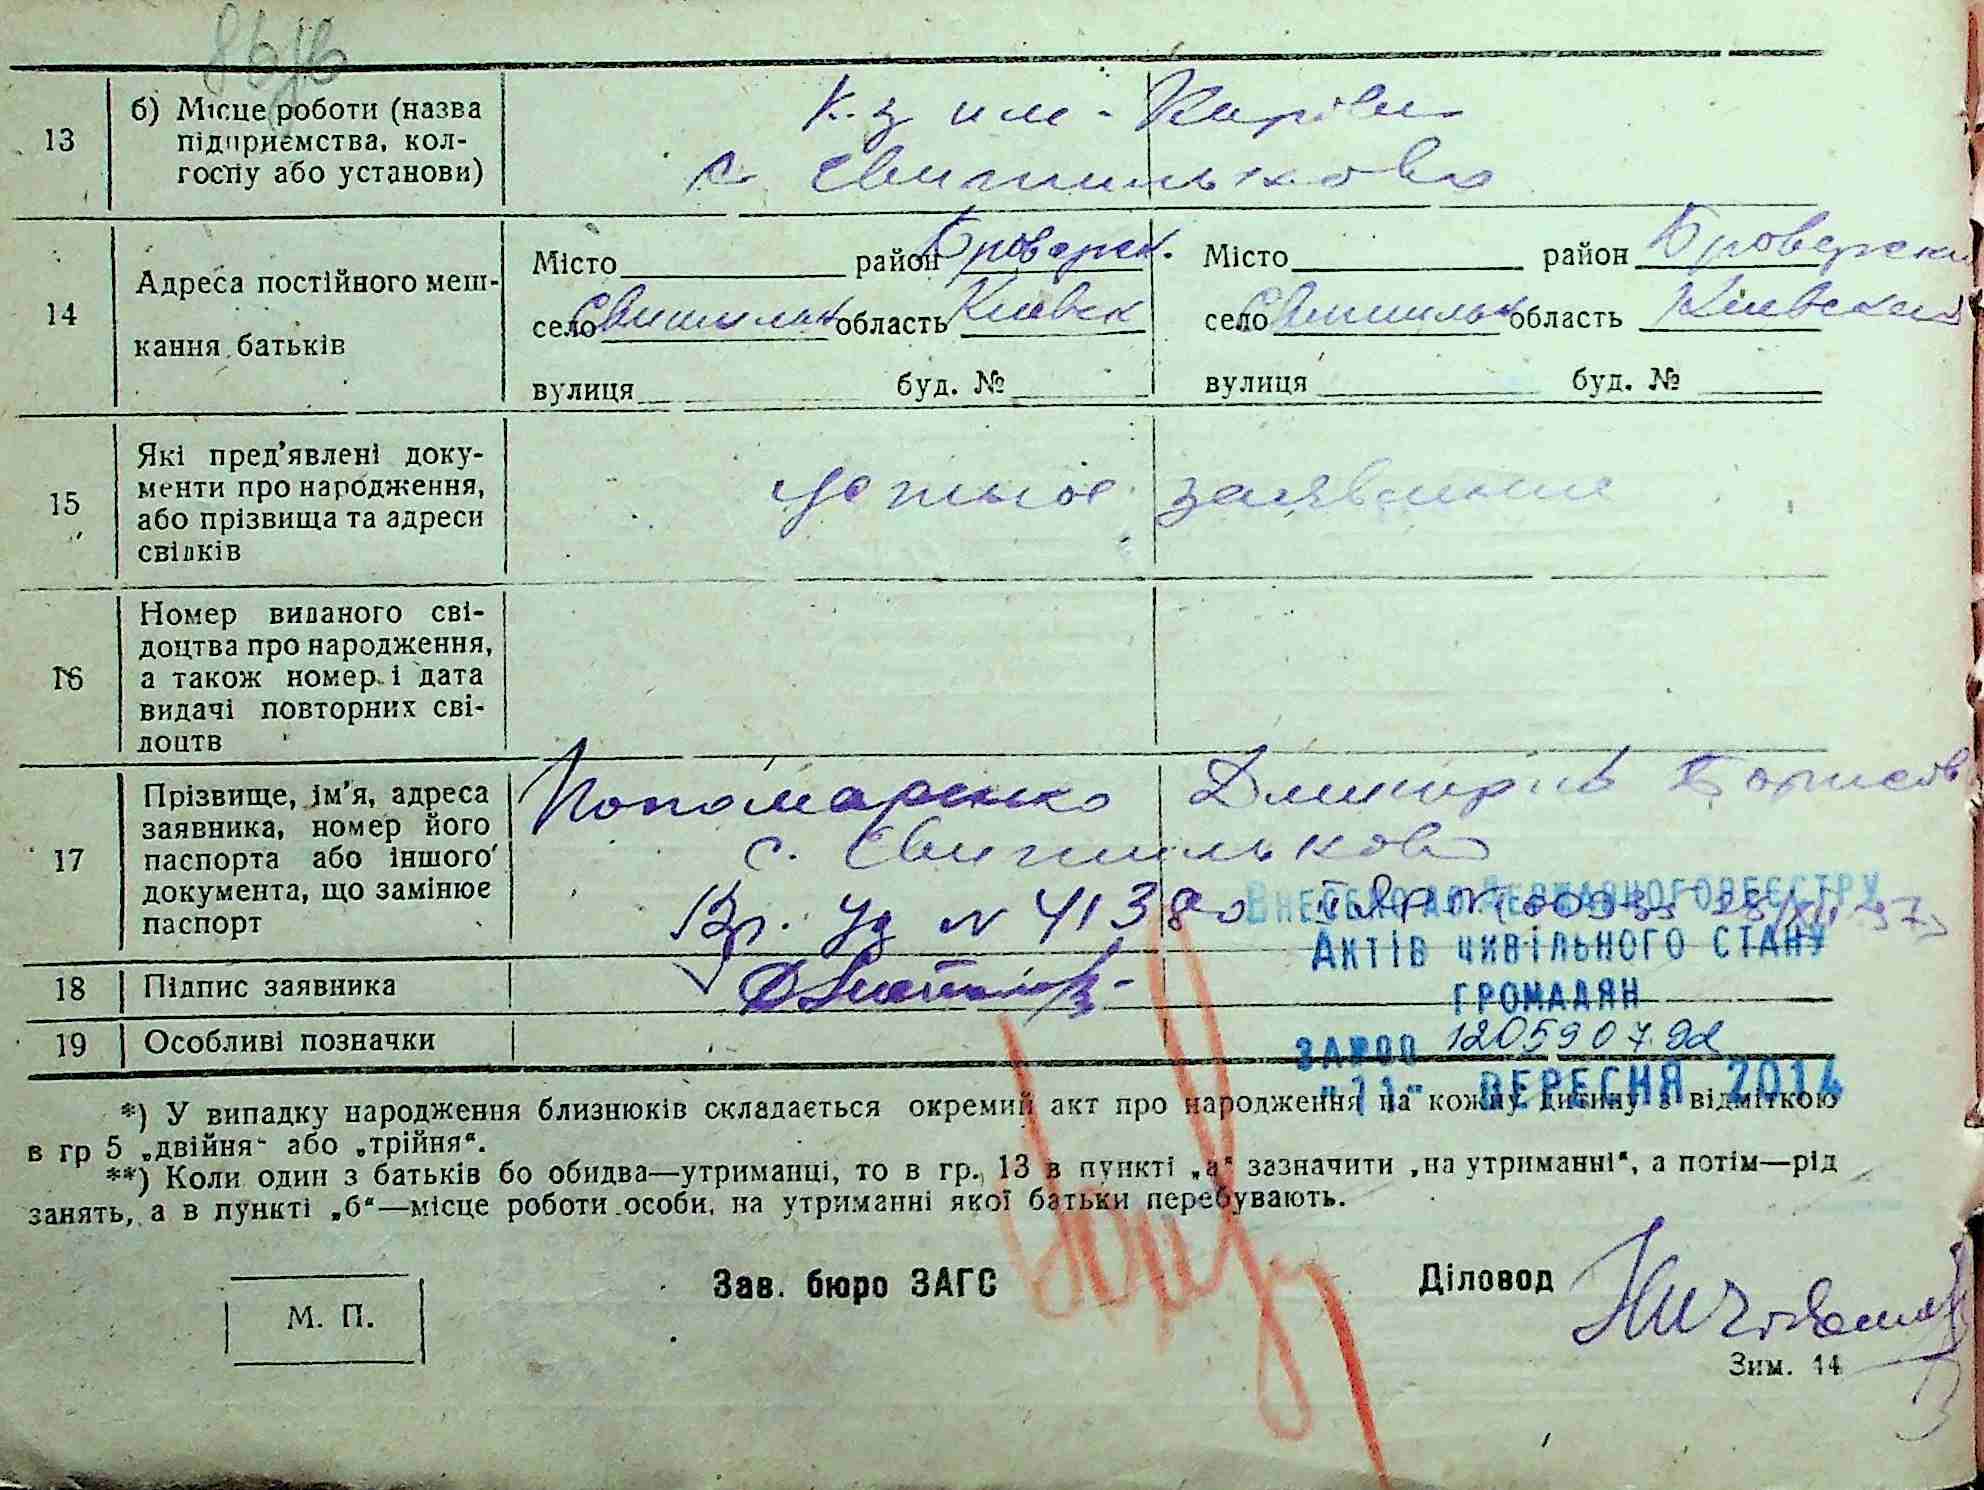 13
б) Місце роботи (назва
підприємства, кол-
госпу або установи)
к-з им-Кирова
с. Свитильново
14
Адреса постійного меш-
кання батьків
Місто район Броварск. Місто район Броварский
село Свитильн область Киевск село Свитильн область Киевская
вулиця буд. № вулиця буд. №
15
Які пред'явлені доку-
менти про народження,
або прізвища та адреси
свідків
устное заявление
16
Номер виданого сві-
доцтва про народження,
а також номер і дата
видачі повторних сві-
доцтв
17
Прізвище, ім'я, адреса
заявника, номер його
паспорта або іншого
документа, що замінює
паспорт
Пономаренко Дмитрий Борисов
с. Свитильново
Вр. уд N 41380
ВНЕСЕНО ДО ДЕРЖАВНОГО РЕЄСТРУ
АКТІВ ЦИВІЛЬНОГО СТАНУ
ГРОМАДЯН
18
Підпис заявника
19
Особливі позначки
ЗА №00 120590792
"11" ВЕРЕСНЯ 2014
*) У випадку народження близнюків складається окремий акт про народження на кожну дитину з відміткою
в гр 5 „двійня" або „трійня".
**) Коли один з батьків бо обидва—утриманці, то в гр., 13 в пункті „а" зазначити „на утриманні", а потім—рід
занять, а в пункті „б"—місце роботи особи, на утриманні якої батьки перебувають.
М. П.
Зав. бюро ЗАГС
Діловод
Зим. 14